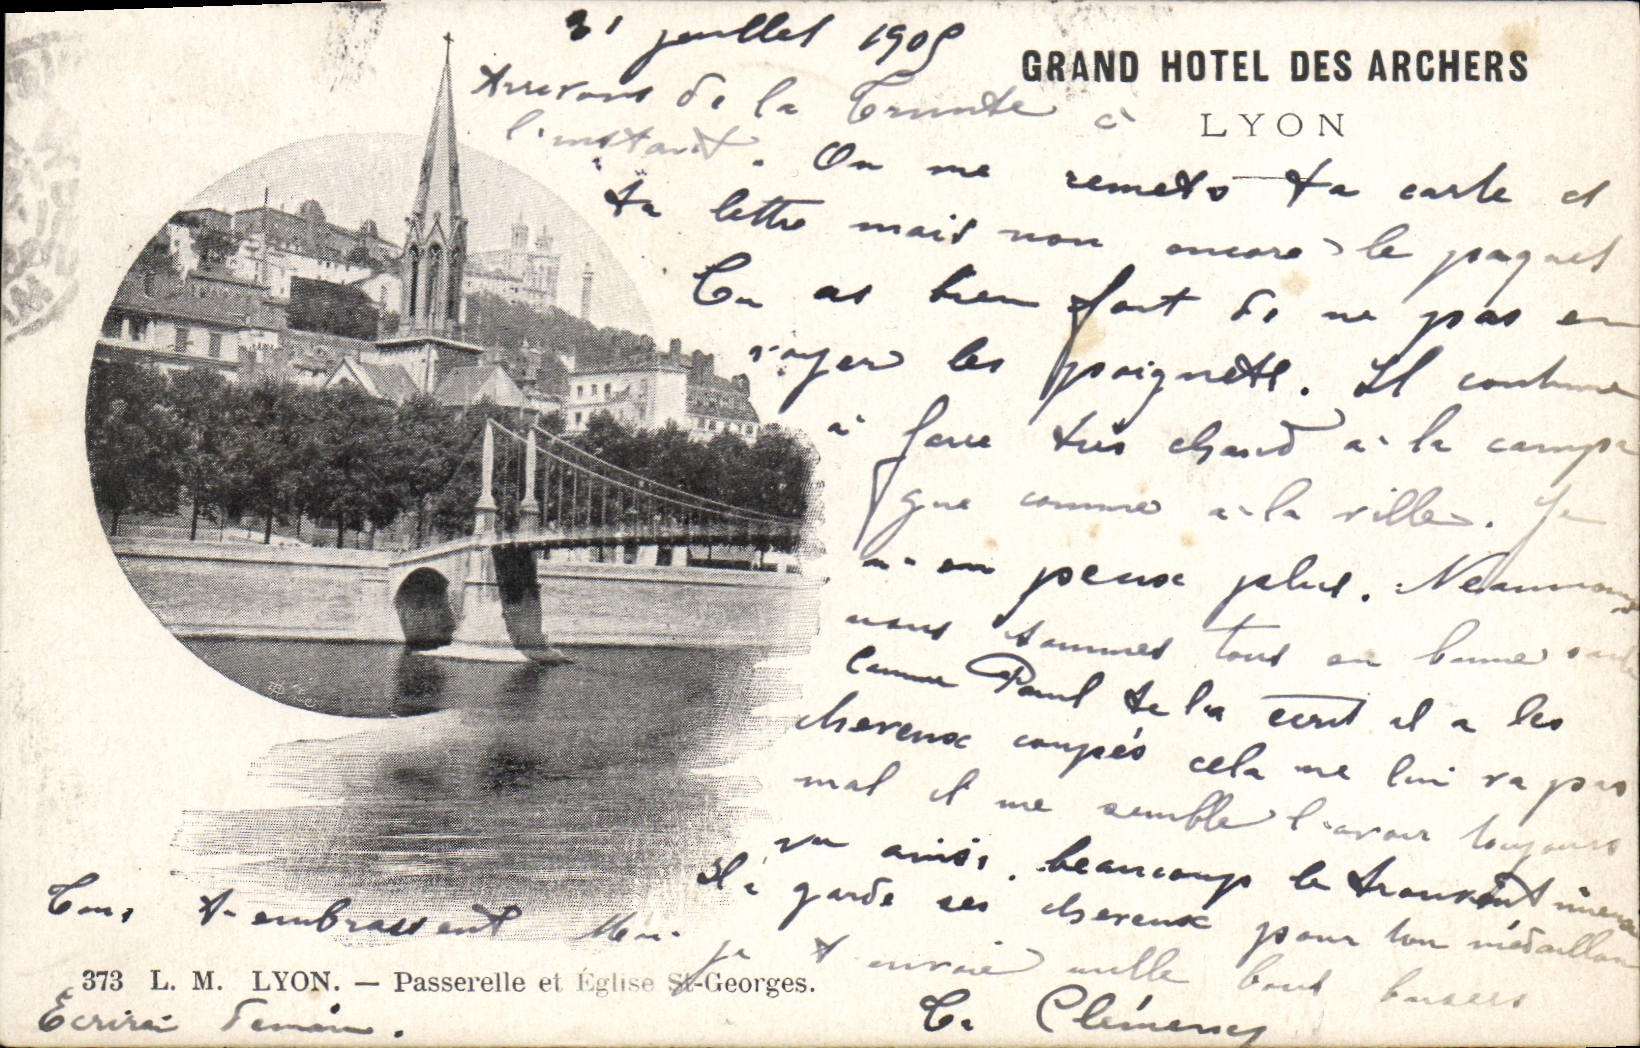 31 juillet 1905
GRAND HOTEL DES ARCHERS
LYON
Arrivons de la Trinité à
l'instant. On me remets ta carte et
ta lettre mais non encore le paquet
Tu as bien fait de ne pas en
voyer les poignets. Il continue
à faire très chaud à la campa
gne comme à la ville. Je
n'en peux plus. Neanmoins
nous sommes tous en bonne santé
Comme Paul te l'a écrit il a les
cheveux coupés cela ne lui va pas
mal il me semble l'avoir toujours
vu ainsi. beaucoup le trouvent mieux
Il a garde ses cheveux pour ton médaillon
Tous t'embrassent Moi je t'envoie mille bons baisers
Ta Clémence
373 L. M. LYON. — Passerelle et Église St-Georges.
Ecrirai demain.